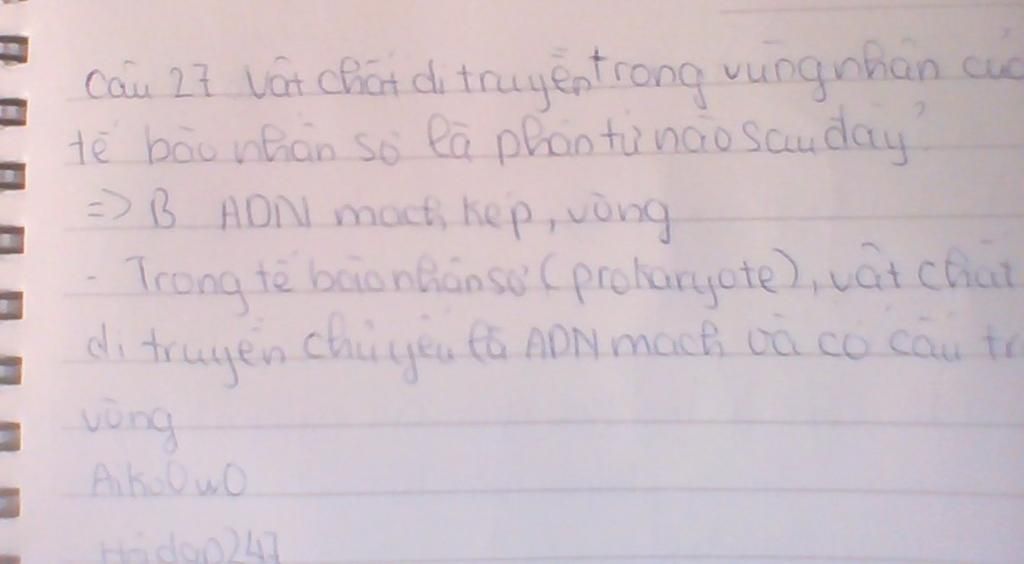 Câu 27 Vật chất di truyền trong vùng nhân của
tế bào nhân sơ là phân tử nào sau đây?
=> B ADN mạch kép, vòng
- Trong tế bào nhân sơ (prokaryote), vật chất
di truyền chủ yếu là ADN mạch và có cấu tr
vòng
AikoOwO
Hoidap247